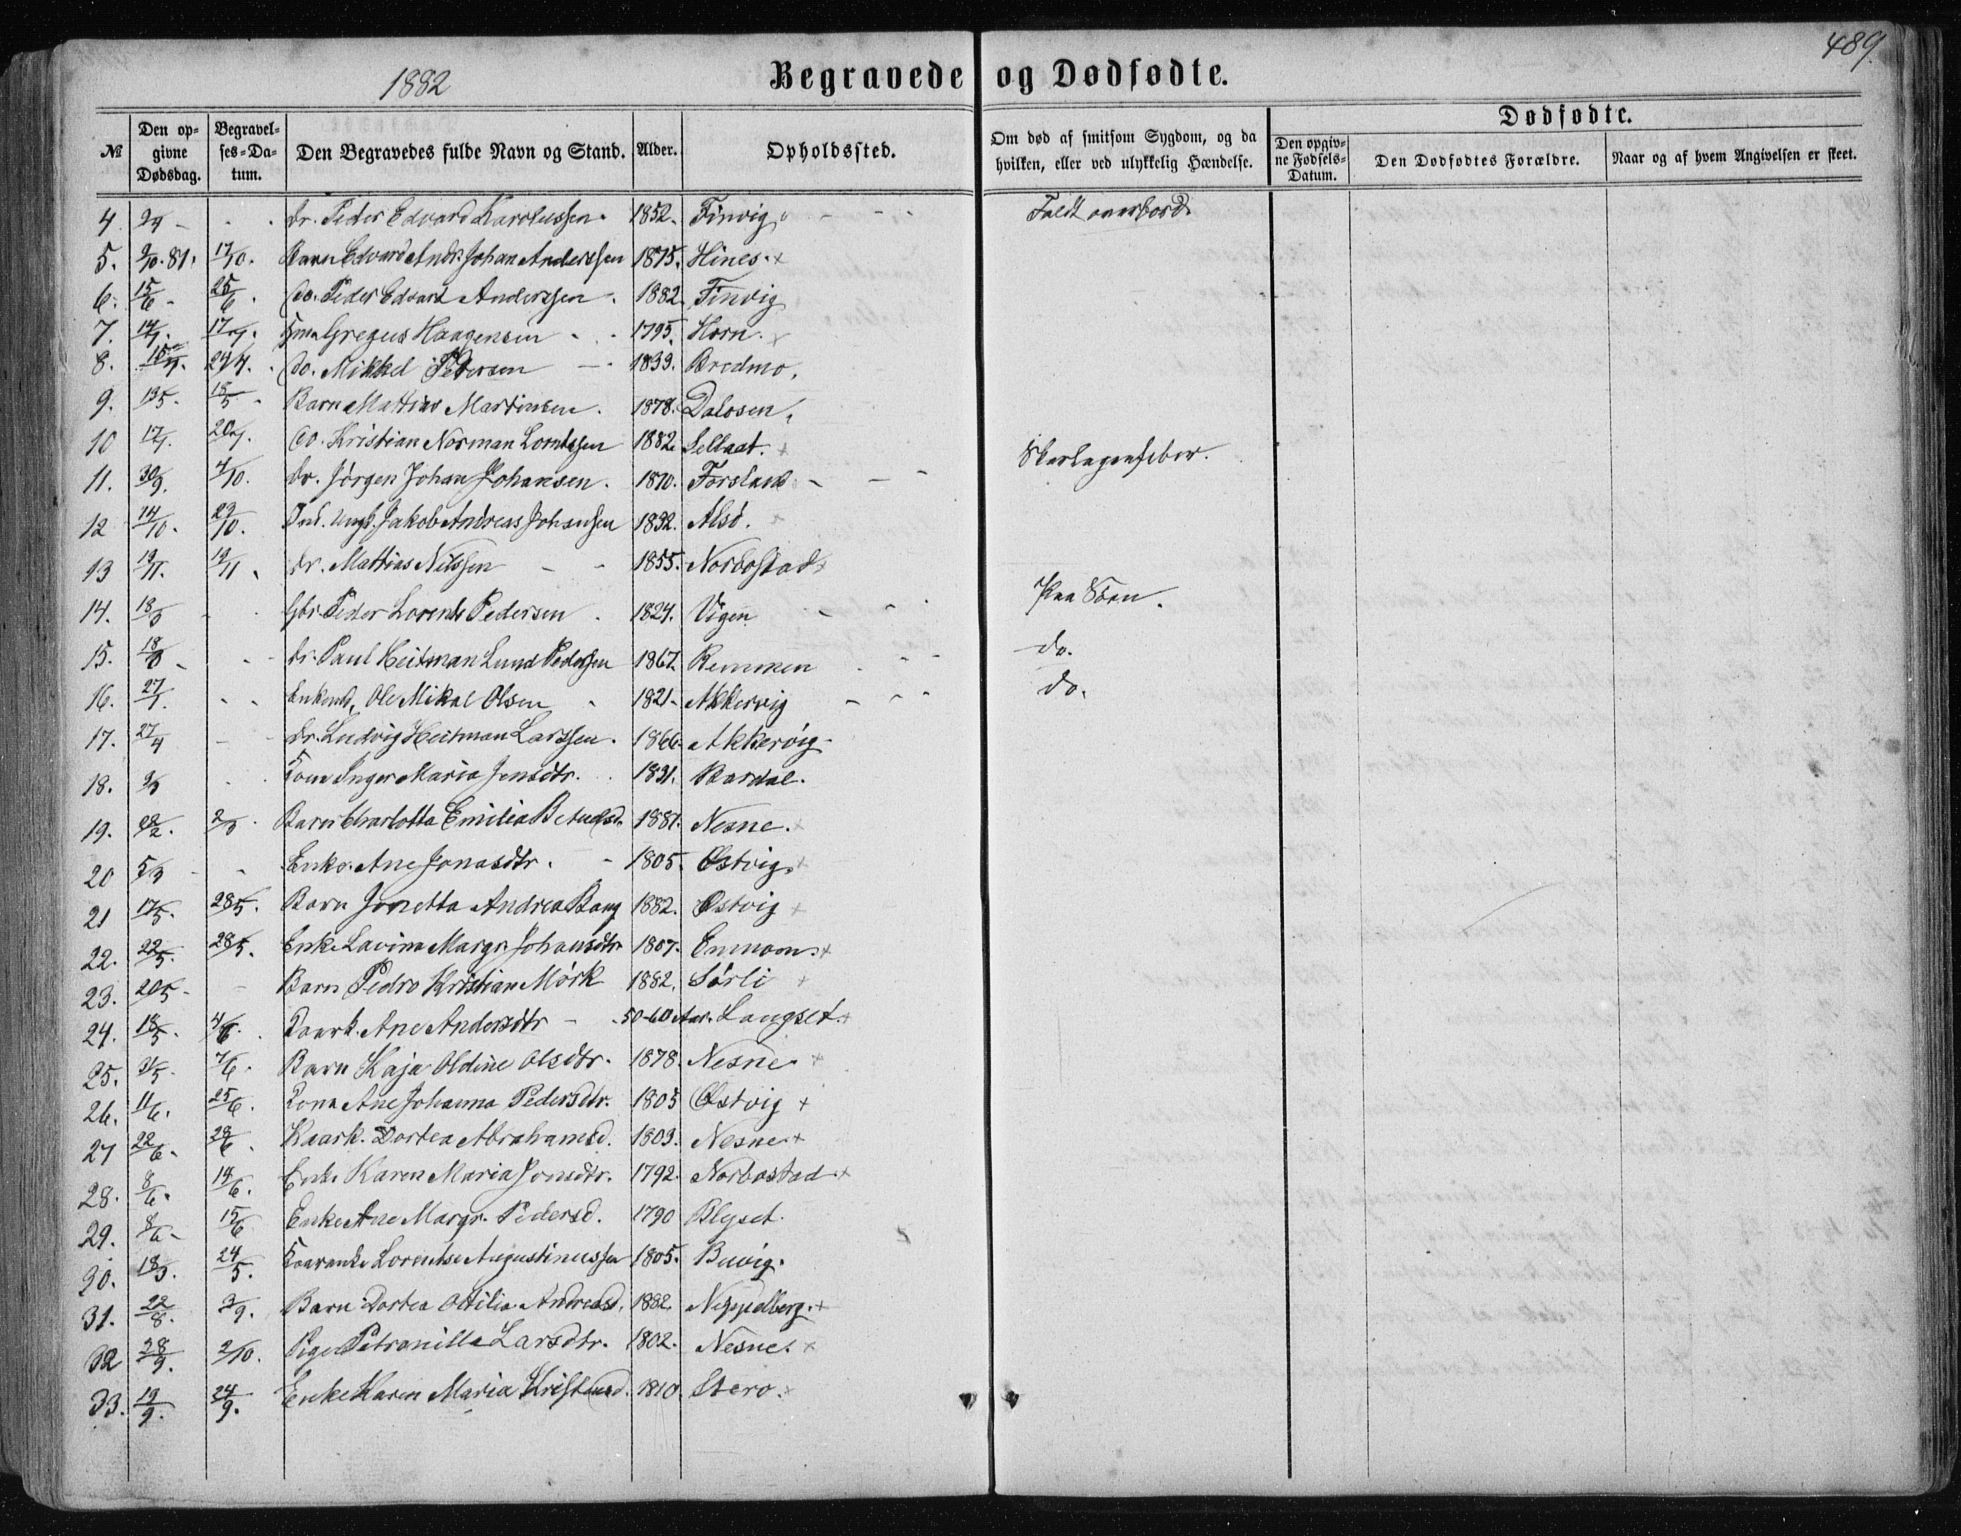 489.
1882
Begravede og Dødfødte.
№
Den opgivne Dødsdag.
Begravelses-Datum.
Den Begravedes fulde Navn og Stand.
Alder.
Opholdssted.
Om død af smitsom Sygdom, og da hvilken, eller ved ulykkelig Hændelse.
Dødfødte.
Den opgivne Fødsels-Datum.
Den Dødfødtes Forældre.
Naar og af hvem Angivelsen er skeet.
4. Peder Edvard Karolussen. 1852. Finvig Faldt overbord
5. 17/10. Barn Edvard Andr. Johan Anderssen 1875. Hines.
6. 15/6 25/6. do. Peder Edvard Anderssen. 1882. Finvig
7. Gregus Haagensen 1795. Horn.
8. do. Mikkel Pedersen 1833. Bredmo.
9. 13/5. 15/5. Barn Mattias Martinsen. 1878. Dalosen
10 do. Kristian Norman Lorntssen 1882. Selbaat.
11. 30/9. 4/10. Jørgen Johan Johansen. 1870. Forsland Skarlagensfeber.
12 14/10. 29/10. Ind. Ungk. Jakob Andreas Johansen 1832. Alsø.
13 19/11. Mattias Nilssen 1855. Nordostad
14. 18/3 Gbr. Peder Lorents Pedersen. 1824. Vigen Paa Søen.
15. 18/3 Paul Heitman Lund Pedersen 1867. Remmen do.
16. 27/1. Enkemd. Ole Mikal Olsen 1821. Akkervig do.
17. 27/4 Ludvig Heitman Larssen. 1866. Akkervig
18. Kone Inger Maria Jensdtr. 1831. Bardal.
19. 2/3. Barn Charlotta Emilia B. 1881. Nesne.
20 5/3 Enke. Ane Jonasdtr. 1805. Østvig
21 17/5. 28/5. Barn Jonetta Andrea Bang 1882. Østvig
22. 22/5. 28/5. Enke Lavina Margr. Johansdtr 1807. Enmoen
23. 20/5 Barn Pedro Kristian Mörk 1882. Sörli
24. 18/5. 4/6. Ane Andersdtr 50-60 Aar. Langset.
25. 31/5. 4/6. Barn Kaja Oldine Olsdtr. 1878. Nesne
26. 11/6. 25/6. Kone Ane Johanna Pedersdtr. 1805 Østvig
27 22/6. 28/6. Kaark. Dortea Abrahamsd. 1803. Nesne
28. 8/6. 14/6. Enke Karen Maria Jonsdtr. 1792. Nordostad
29. 8/6 15/6 Enke Ane Margr. Pedersd. 1790 Blejset.
30. 24/5. Lorentse Augustinussen 1805. Buvig.
31. 22/8. 3/9. Barn Dortea Ottilia Andreasd. 1882. Neppelberg.
32 28/9. 2/10. Pige Petronilla Larsdtr. 1802. Nesne.
33. 19/9. 24/9. Enke Karen Maria 1810.